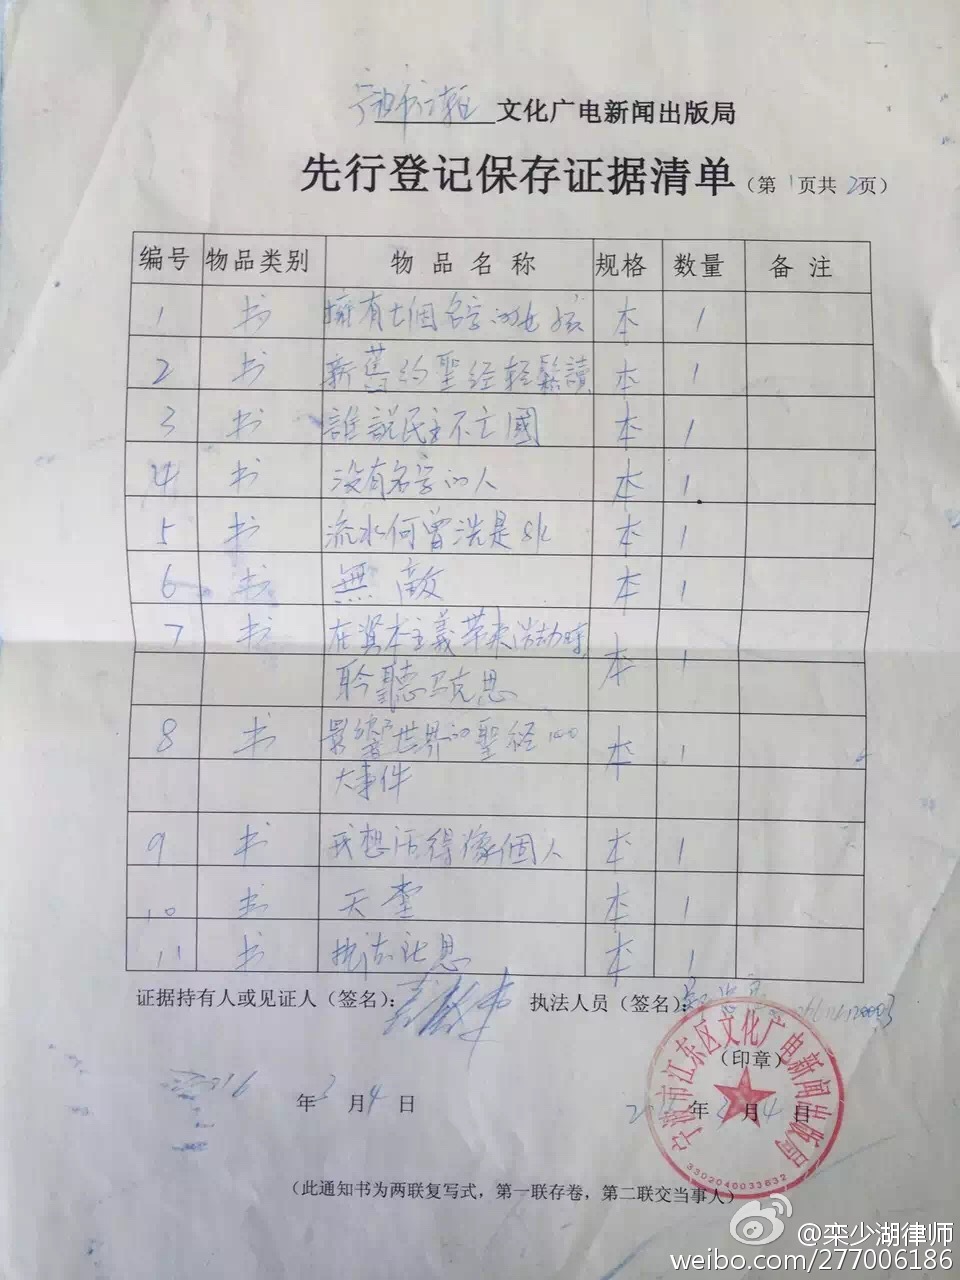 宁波市江东 文化广电新闻出版局
先行登记保存证据清单(第1页共2页)
编号 物品类别 物品名称 规格 数量 备注
1 书 擁有七個名字的女孩 本 1
2 书 新舊約聖經輕鬆讀 本 1
3 书 誰說民主不亡國 本 1
4 书 沒有名字的人 本 1
5 书 流水何曾洗是非 本 1
6 书 無敵 本 1
7 书 在資本主義带来浩劫時, 本 1
聆聽马克思
8 书 影響世界的聖經100 本 1
大事件
9 书 我想活得像個人 本 1
10 书 天堂 本 1
11 书 本 1
证据持有人或见证人(签名): 执法人员(签名):
(印章)
2016年3月4日 年 月4日
宁波市江东区文化广电新闻出版局
3302040033632
(此通知书为两联复写式,第一联存卷,第二联交当事人)
@栾少湖律师
weibo.com/277006186